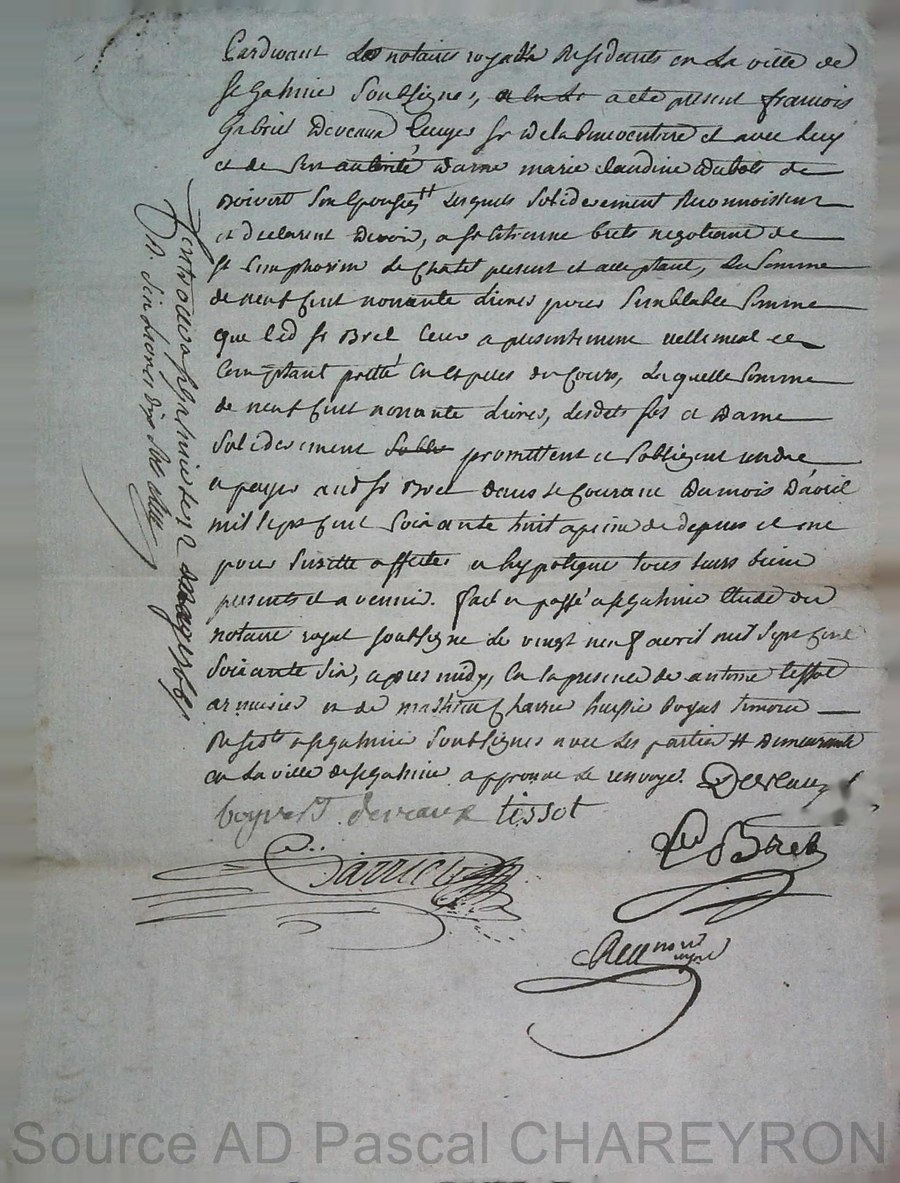 Pardevant les notaires royaux Residents en La ville de
st Galmier Soubsignes, a ete present francois
Gabriel Deveaux Ecuyer sr de la et avec luy
et de Son autorité dame marie claudine dubois de
Boivert Son Epouse Lesquels Solidairement Reconnoissent
et declarent devoir, a sr Etienne brets negotiant de
st Simphorien Le Chatel present et acceptant, La Somme
de neuf Cent nonante Livres pour Semblable Somme
que Led sr Bret Leur a presentement reellement et
Comptant pretté En Especes du Cours, Laquelle Somme
de neuf Cent nonante Livres, Lesdits srs et Dame
Solidairement promettent et Sobligent rendre
et payer audit sr Bret dans Le Courant du mois D'avril
mil Sept Cent Soixante huit a peine de depens et ont
pour Surette affectes et hypotequé tous Leurs biens
presents et a venir. fait et passé a st galmier Etude du
notaire royal soubsigne Le vingt neuf avril mil Sept Cent
Soixante Six, apres midy, En La presence de antoine tissot
armurier et de mathieu huissier Royal temoins
Residts a st galmier Soubsignes avec Les parties # demeurants
En La ville de st galmier approuvé Le renvoye. Deveaux
boyvert deveaux tissot
Bret
notre
royal
Controlé a st galmier Le 2 may 1766
R. Six Livres dix Sols
Source AD Pascal CHAREYRON